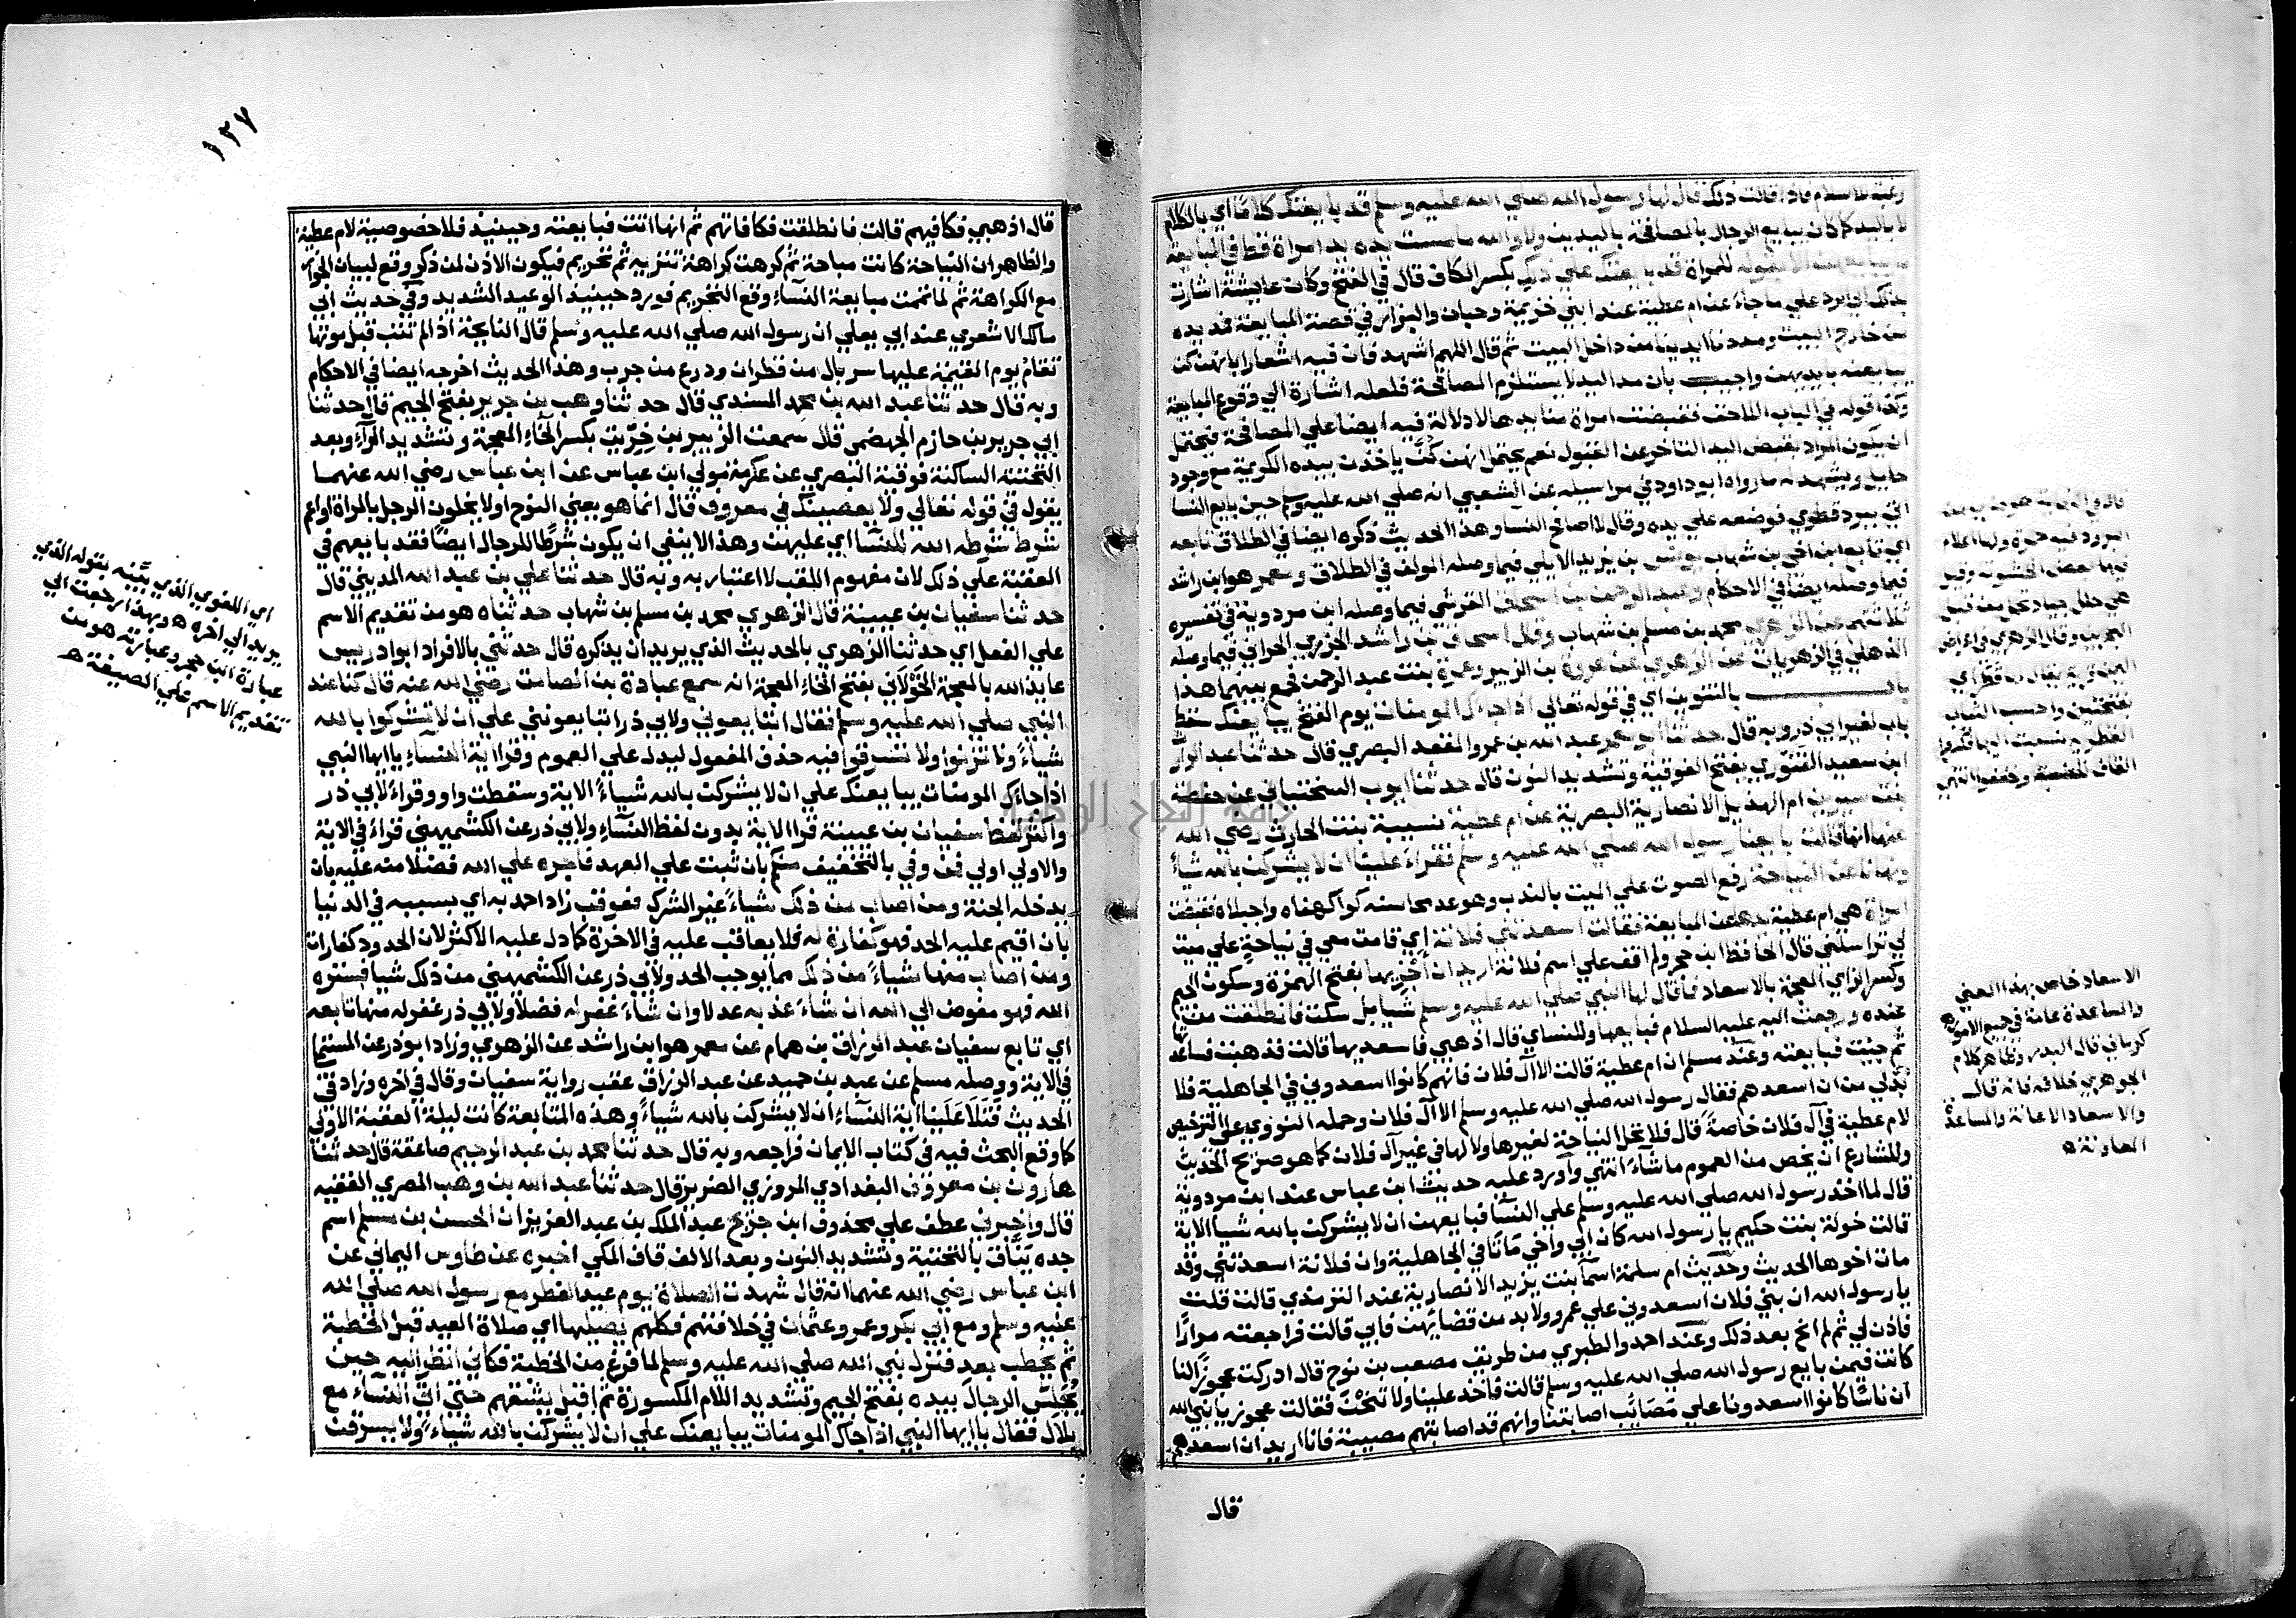 رغبة للاسلام فاذا قالت ذلك قال لها رسول الله صلي الله عليه وسلم قد بايعتك كلاما اي بالكلام
لا باليد كما كان يبايع الرجال بالمصافحة باليدين ولا والله ما مست يده يد امراة قط في المبايعة
ما يبايعهن الا بقوله للمراة قد بايعتك علي ذلك بكسر الكاف قال في الفتح وكان عايشة اشارت
بذلك الي الرد علي ما جاء عن ام عطية عند ابني خزيمة وحبان والبزار في قصة المبايعة فمد يده
من خارج البيت ومددنا ايدينا من داخل البيت ثم قال اللهم اشهد فان فيه اشعارا بانهن كن
يبايعنه بايديهن واجيب بان مد اليد لا يستلزم المصافحة فلعله اشارة الي وقوع المبايعة
وكذا قوله في الباب اللاحق فقبضت امراة منا يدها لا دلالة فيه ايضا علي المصافحة فيحتمل
ان يكون المراد بقبض اليد التاخر عن القبول نعم يحتمل انهن كن ياخذن بيده الكريمة مع وجود
حايل ويشهد له ما رواه ابو داود في مراسيله عن الشعبي انه صلي الله عليه وسلم حين بايع النسا
اتي ببرد قطري فوضعه علي يده وقال لا اصافح النسا وهذا الحديث ذكره ايضا في الطلاق تابعه
اي تابع ابن اخي بن شهاب يونس بن يزيد الايلي فيما وصله المولف في الطلاق ومعمر هو ابن راشد
فيما وصله ايضا في الاحكام وعبد الرحمن بن اسحاق القرشي فيما وصله ابن مردوية في تفسيره
ثلاثتهم عن الزهري محمد بن مسلم بن شهاب وقال اسحاق بن راشد الجزري الحراني فيما وصله
الذهلي في الزهريات عن الزهري عن عروة بن الزبير وعمرة بنت عبد الرحمن فجمع بينهما هذا
باب بالتنوين اي في قوله تعالي اذا جاك المومنات يوم الفتح يبايعنك سقط
باب لغير ابي ذر وبه قال حدثنا ابو معمر عبد الله بن عمرو المقعد البصري قال حدثنا عبد الوارث
ابن سعيد التنوري بفتح الفوقية وتشديد النون قال حدثنا ايوب السختياني عن حفصة
بنت سيرين ام الهذيل الانصارية البصرية عن ام عطية نسيبة بنت الحارث رضي الله
عنها انها قالت بايعنا رسول الله صلي الله عليه وسلم فقراء علينا ان لا يشركن بالله شياء
ونهانا عن النياحة رفع الصوت علي الميت بالندب وهو عد محاسنه كواكهفاه واجبلاه فقبضت
امراة هي ام عطية يدها عن المبايعة فقالت اسعدتني فلانة اي قامت معي في نياحة علي ميت
لي تراسلني قال الحافظ ابن حجر ولم اقف علي اسم فلانة اريد ان اجزيها بفتح الهمزة وسكون الجيم
وكسر الزاي المعجمة بالاسعاد فما قال لها النبي صلي الله عليه وسلم شيا بل سكت فانطلقت من
عنده ورجعت اليه عليه السلام فبايعها وللنساي قال اذهبي فاسعديها قالت فذهبت فساعدتها
ثم جيت فبايعته وعند مسلم ان ام عطية قالت الا آل فلان فانهم كانوا اسعدوني في الجاهلية فلا
بدلي من ان اسعدهم فقال رسول الله صلي الله عليه وسلم الا آل فلان وحمله النووي علي الترخيص
لام عطية في آل فلان خاصة قال فلا تحل النياحة لغيرها ولا لها في غير آل فلان كما هو صريح الحديث
وللشارع ان يخص من العموم ما شاء انتهي واورد عليه حديث ابن عباس عند ابن مردوية
قال لما اخذ رسول الله صلي الله عليه وسلم علي النسا فبايعهن ان لا يشركن بالله شيا الاية
قالت خولة بنت حكيم يا رسول الله كان ابي واخي ماتا في الجاهلية وان فلانة اسعدتني وقد
مات اخوها الحديث وحديث ام سلمة اسما بنت يزيد الانصارية عند الترمذي قالت قلت
يا رسول الله ان بني فلان اسعدوني علي عمي ولا بد من قضايهن فابي قالت فراجعته مرارا
فاذن لي ثم لم انح بعد ذلك وعند احمد والطبري من طريق مصعب بن نوح قال ادركت عجوزا لنا
كانت فيمن بايع رسول الله صلي الله عليه وسلم قالت فاخذ علينا ولا تنحن فقالت عجوز يا نبي الله
ان ناسا كانوا اسعدونا علي مصايب اصابتنا وانهم قد اصابتهم مصيبة فانا اريد ان اسعدهم
قال
الاسعاد خاص بهذا المعني
والمساعدة عامة في جميع الامور
كرماني قال البدر وظاهر كلام
الجوهري خلافه فانه قال
والاسعاد الاعانة والمساعدة
المعاونة ه
١٢٧
قال اذهبي فكافيهم قالت فانطلقت فكافاتهم ثم انها اتت فبايعته وحينيذ فلا خصوصية لام عطية
والظاهر ان النياحة كانت مباحة ثم كرهت كراهة تنزيه ثم تحريم فيكون الاذن لمن ذكر وقع لبيان الجواز
مع الكراهة ثم لما تمت مبايعة النساء وقع التحريم فورد حينيذ الوعيد الشديد وفي حديث ابي
مالك الاشعري عند ابي يعلي ان رسول الله صلي الله عليه وسلم قال النايحة اذا لم تتب قبل موتها
تقام يوم القيمة عليها سربال من قطران ودرع من جرب وهذا الحديث اخرجه ايضا في الاحكام
وبه قال حدثنا عبد الله بن محمد المسندي قال حدثنا وهب بن جرير بفتح الجيم قال حدثنا
ابي جرير بن حازم الجهضمي قال سمعت الزبير بن خريت بكسر الخاء المعجمة وتشديد الراء وبعد
التحتية الساكنة فوقية البصري عن عكرمة مولي ابن عباس عن ابن عباس رضي الله عنهما
يقول في قوله تعالي ولا يعصينك في معروف قال انما هو يعني النوح او لا يخلون الرجل بالمراة او اعم
شرط شرطه الله للنسا اي عليهن وهذا لا ينفي ان يكون شرطا للرجال ايضا فقد بايعهم في
العقبة علي ذلك لان مفهوم اللقب لا اعتبار به وبه قال حدثنا علي بن عبد الله المديني قال
حدثنا سفيان بن عيينة قال الزهري محمد بن مسلم بن شهاب حدثناه هو من تقديم الاسم
علي الفعل اي حدثنا الزهري بالحديث الذي يريد ان يذكره قال حدثني بالافراد ابو ادريس
عايذ الله بالمعجمة الخولاني بفتح الخاء المعجمة انه سمع عبادة بن الصامت رضي الله عنه قال كنا عند
النبي صلي الله عليه وسلم فقال اتبايعوني ولابي ذر اتبايعونني علي ان لا تشركوا بالله
شياء ولا تزنوا ولا تسرقوا فيه حذف المفعول ليدل علي العموم وقرا اية النساء يا ايها النبي
اذا جاءك المومنات يبايعنك علي ان لا يشركن بالله شياء الاية وسقطت واو وقراء لابي ذر
واكثر لفظ سفيان بن عيينة قرا الاية بدون لفظ النساء ولابي ذر عن الكشميهني قراء في الاية
والاولي اولي فمن وفي بالتخفيف منكم بان ثبت علي العهد فاجره علي الله فضلا منه عليه بان
يدخله الجنة ومن اصاب من ذلك شياء غير الشرك فعوقب زاد احمد به اي بسببه في الدنيا
بان اقيم عليه الحد فهو كفارة له فلا يعاقب عليه في الاخرة كما دل عليه الاكثر لان الحدود كفارات
ومن اصاب منها شياء من ذلك مما يوجب الحد ولابي ذر عن الكشميهني من ذلك شيا فستره
الله فهو مفوض الي الله ان شاء عذبه عدلا وان شاء غفر له فضلا ولابي ذر غفر له منها تابعه
اي تابع سفيان عبد الرزاق بن همام عن معمر هو ابن راشد عن الزهري وزاد ابو ذر عن المستملي
في الاية ووصله مسلم عن عبد بن حميد عن عبد الرزاق عقب رواية سفيان وقال في اخره وزاد في
الحديث فتلا علينا اية النساء ان لا يشركن بالله شياء وهذه المتابعة كانت ليلة العقبة الاولي
كما وقع البحث فيه في كتاب الايمان فراجعه وبه قال حدثنا محمد بن عبد الرحيم صاعقة قال حدثنا
هارون بن معروف البغدادي المروزي الضرير قال حدثنا عبد الله بن وهب المصري الفقيه
قال واخبرني عطف علي محذوف ابن جريج عبد الملك بن عبد العزيز ان الحسن بن مسلم اسم
جده يناق بالتحتية وتشديد النون وبعد الالف قاف المكي اخبره عن طاوس اليماني عن
ابن عباس رضي الله عنهما انه قال شهدت الصلاة يوم عيد الفطر مع رسول الله صلي الله
عليه وسلم ومع ابي بكر وعمر وعثمان في خلافتهم فكلهم يصليها اي صلاة العيد قبل الخطبة
ثم يخطب بعد فنزل نبي الله صلي الله عليه وسلم لما فرغ من الخطبة فكاني انظر اليه حين
يجلس الرجال بيده بفتح الجيم وتشديد اللام المكسورة ثم اقبل يشقهم حتي اتي النساء مع
بلال فقال يا ايها النبي اذا جاك المومنات يبايعنك علي ان لا يشركن بالله شياء ولا يسرقن
اي اللغوي الذي بينه بقوله الذي
يريد الي اخره ه وبهذا رجعت الي
عبارة ابن حجر وعبارته هو من
تقديم الاسم علي الصيغة ه